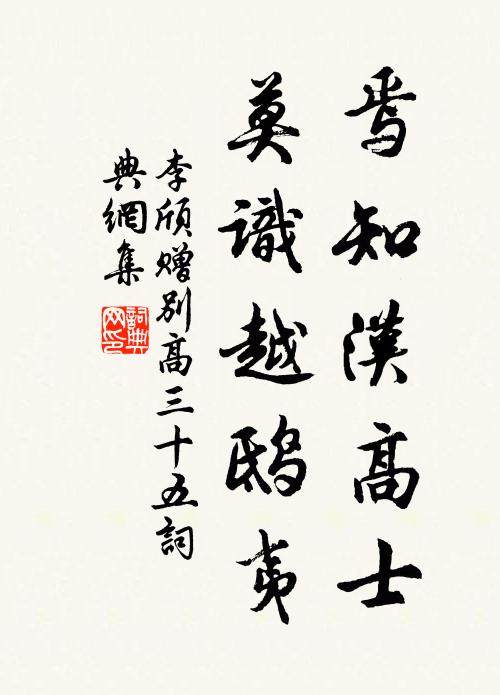 焉知漢高士
莫識越鴟夷
李頎贈別高三十五詞
典網集
詞典
网印